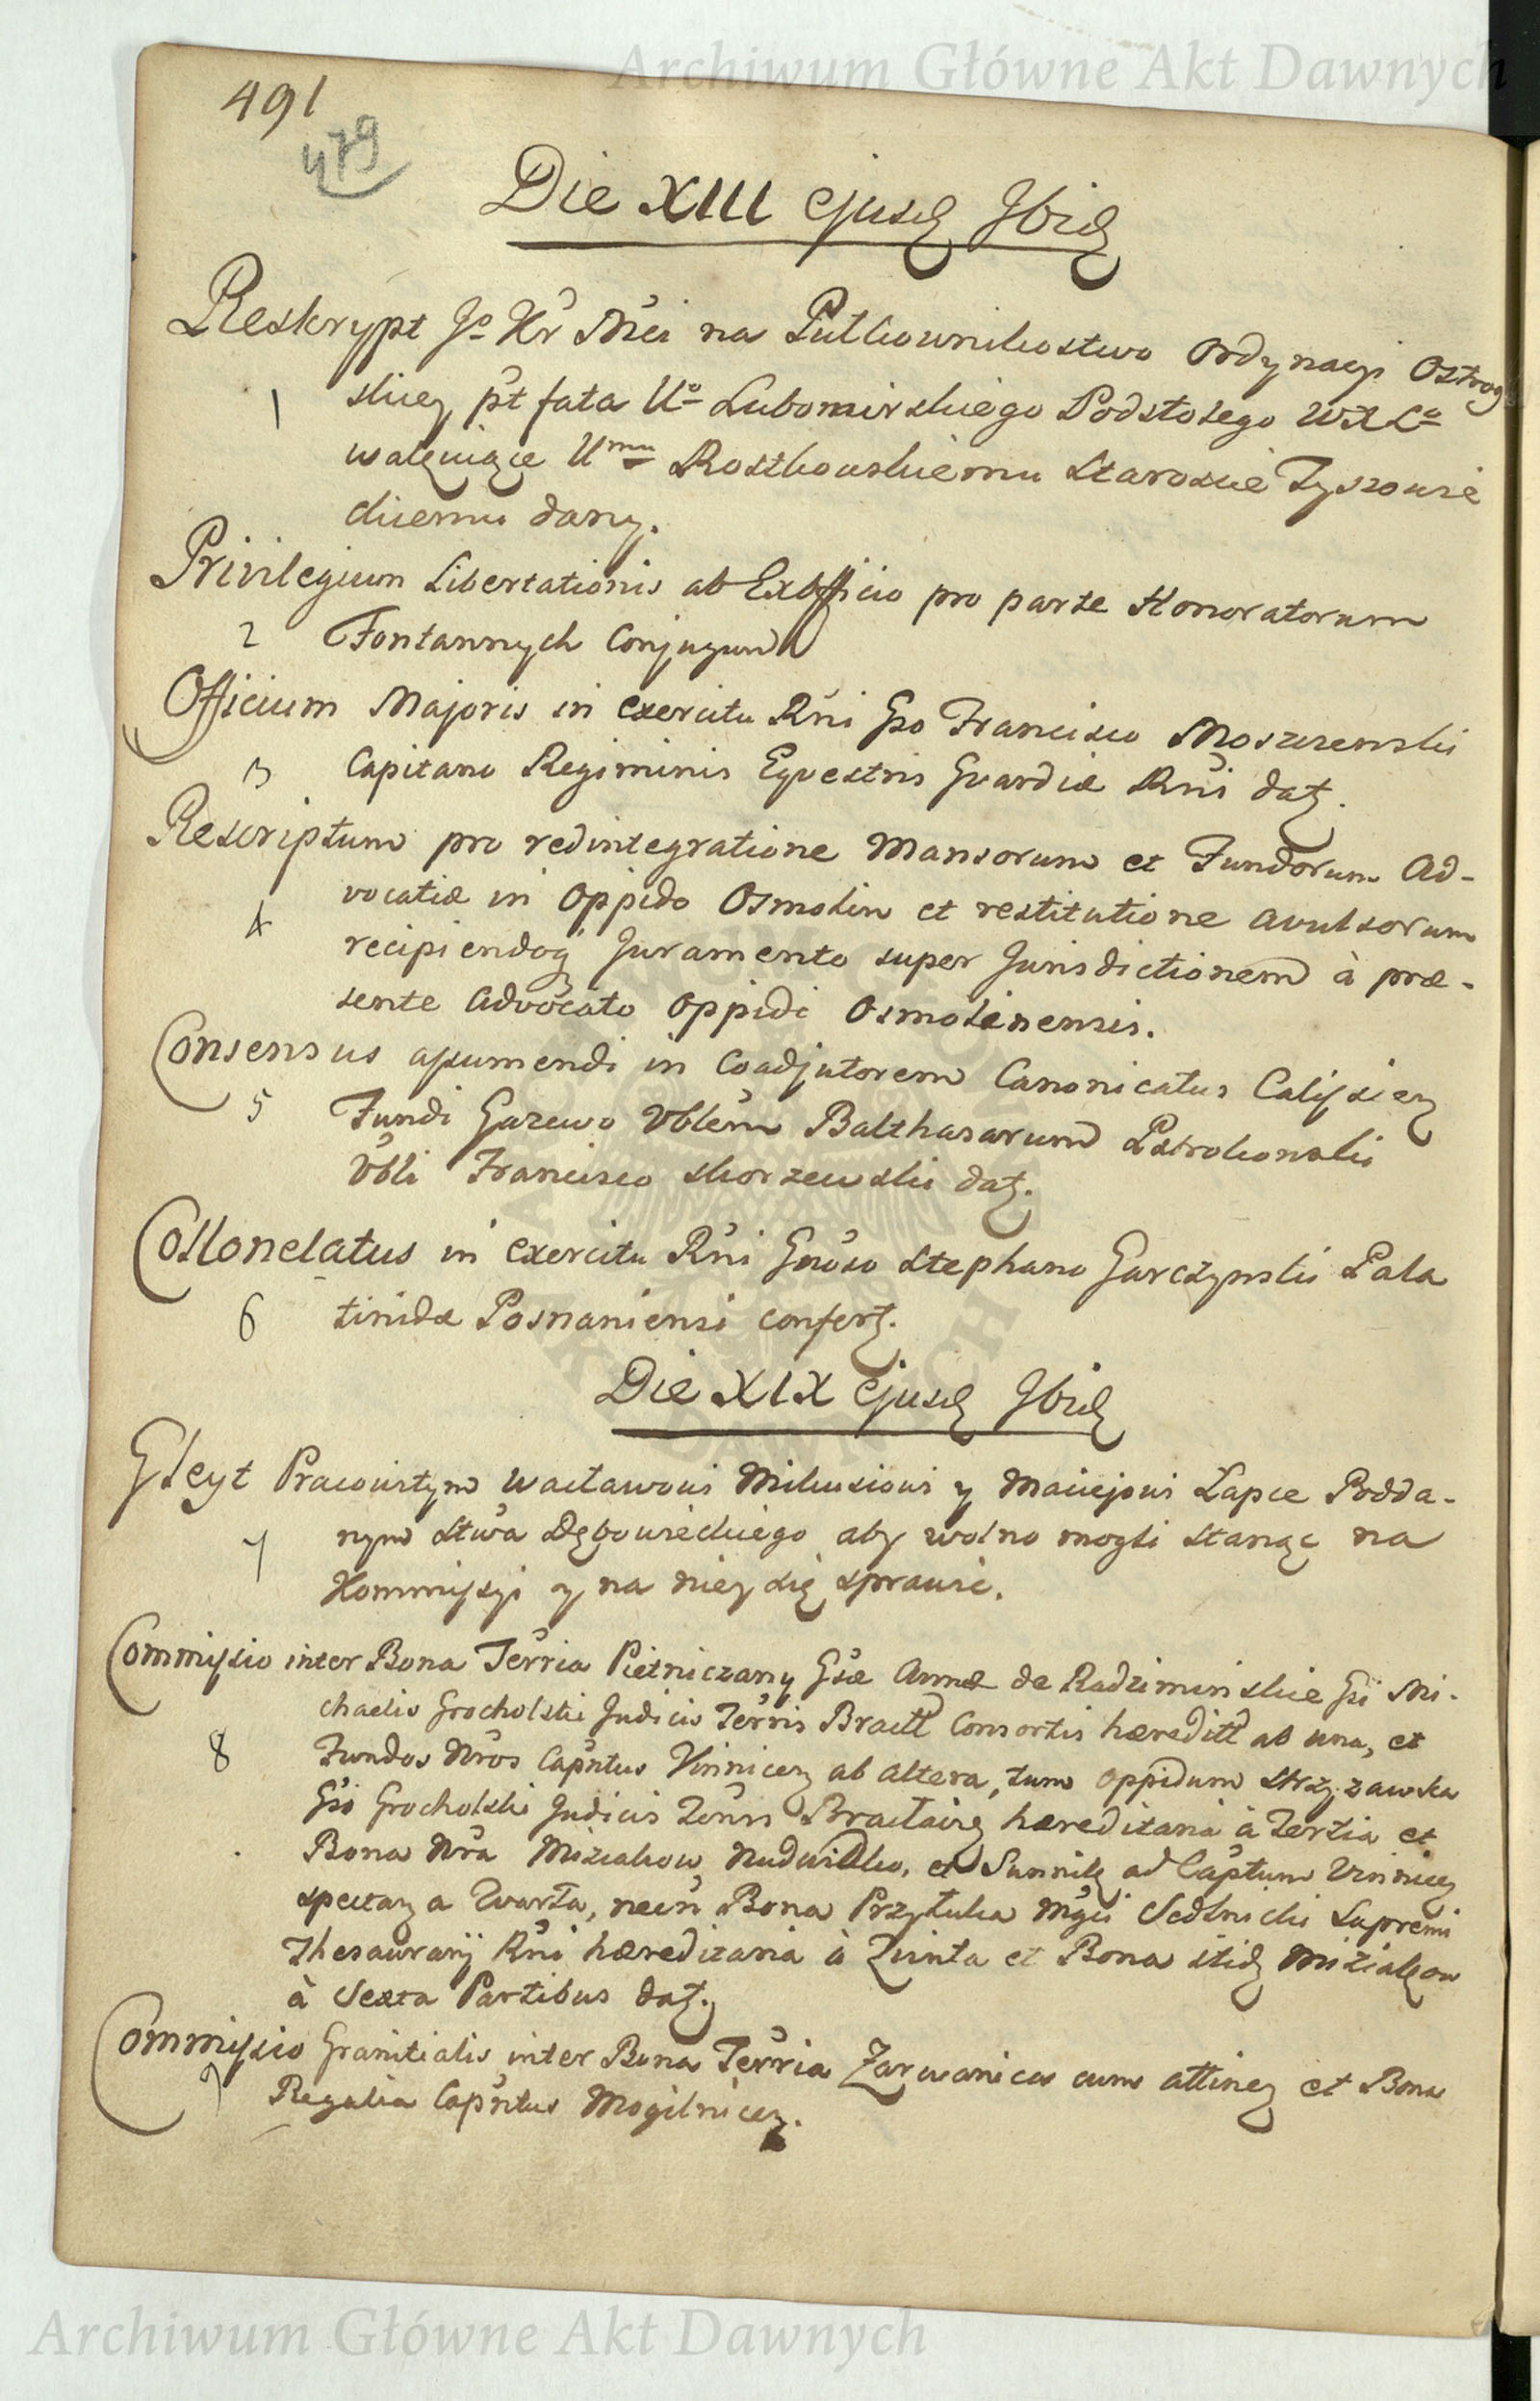 Archiwum Główne Akt Dawnych
491
479
Die XIII ejusd Ibid
Reskrypt Jo Kr Mci na Pułkownikostwo Ordynacyi Ostrog
skiey pt fata Uo Lubomirskiego Podstolego WXLo
wakuiące Umu Rostkowskiemu Staroscie Tyszowie
ckiemu dany.
Privilegium Libertationis ab Exofficio pro parte Honoratorum
2 Fontannych Conjugum
Officium Majoris in exercitu Rni Gso Francisco Moszczenski
3 Capitano Regiminis Equestris Guardiæ Rni dat.
Rescriptum pro redintegratione Mansorum et Fundorum Ad-
vocatiæ in Oppido Osmolin et restitutione avulsorum
4 recipiendoq Juramento super Jurisdictionem à præ-
sente Advocato Oppidi Osmolinensis.
Consensus assumendi in Coadjutorem Canonicatus Calissien
5 Fundi Vblem Balthasarum Pstrokonski
Vbli Francisco Skorzewski dat.
Collonelatus in exercitu Rni Gnoso Stephano Garczynski Pala
6 tinidæ Posnaniensi confert.
Die XIX ejusd Ibid
Gleyt Pracowitym Wacławowi Mikusiowi y Maciejowi Łapce Podda-
7 nym Stwa Dębowieckiego aby wolno mogli stanąc na
Kommissyi y na niey się sprawic.
Commissio inter Bona Terria Pietniczany Gsæ Annæ de Radziminskie Gsi Mi-
chaelis Grocholski Judicis Terris Bracll Consortis hæreditt ab una, et
8 Fundos Nros Capntus Vinnicen ab altera, tum oppidum Strzyzawka
Gsi Grocholski Judicis Terris Braclavien hæreditaria à Tertia et
Bona Nra Miziakow, et ad Captum Vinnicen
spectan a Quarta, necn Bona Przyłuka Mgci Sedlnicki Supremi
Thesaurarij Rni hæreditaria à Quinta et Bona itid Miziakow
à Sexta Partibus dat.
Commissio Granitialis inter Bona Terria Zarwanica cum attinen et Bona
9 Regalia Capntus Mogilnicen.
Archiwum Główne Akt Dawnych